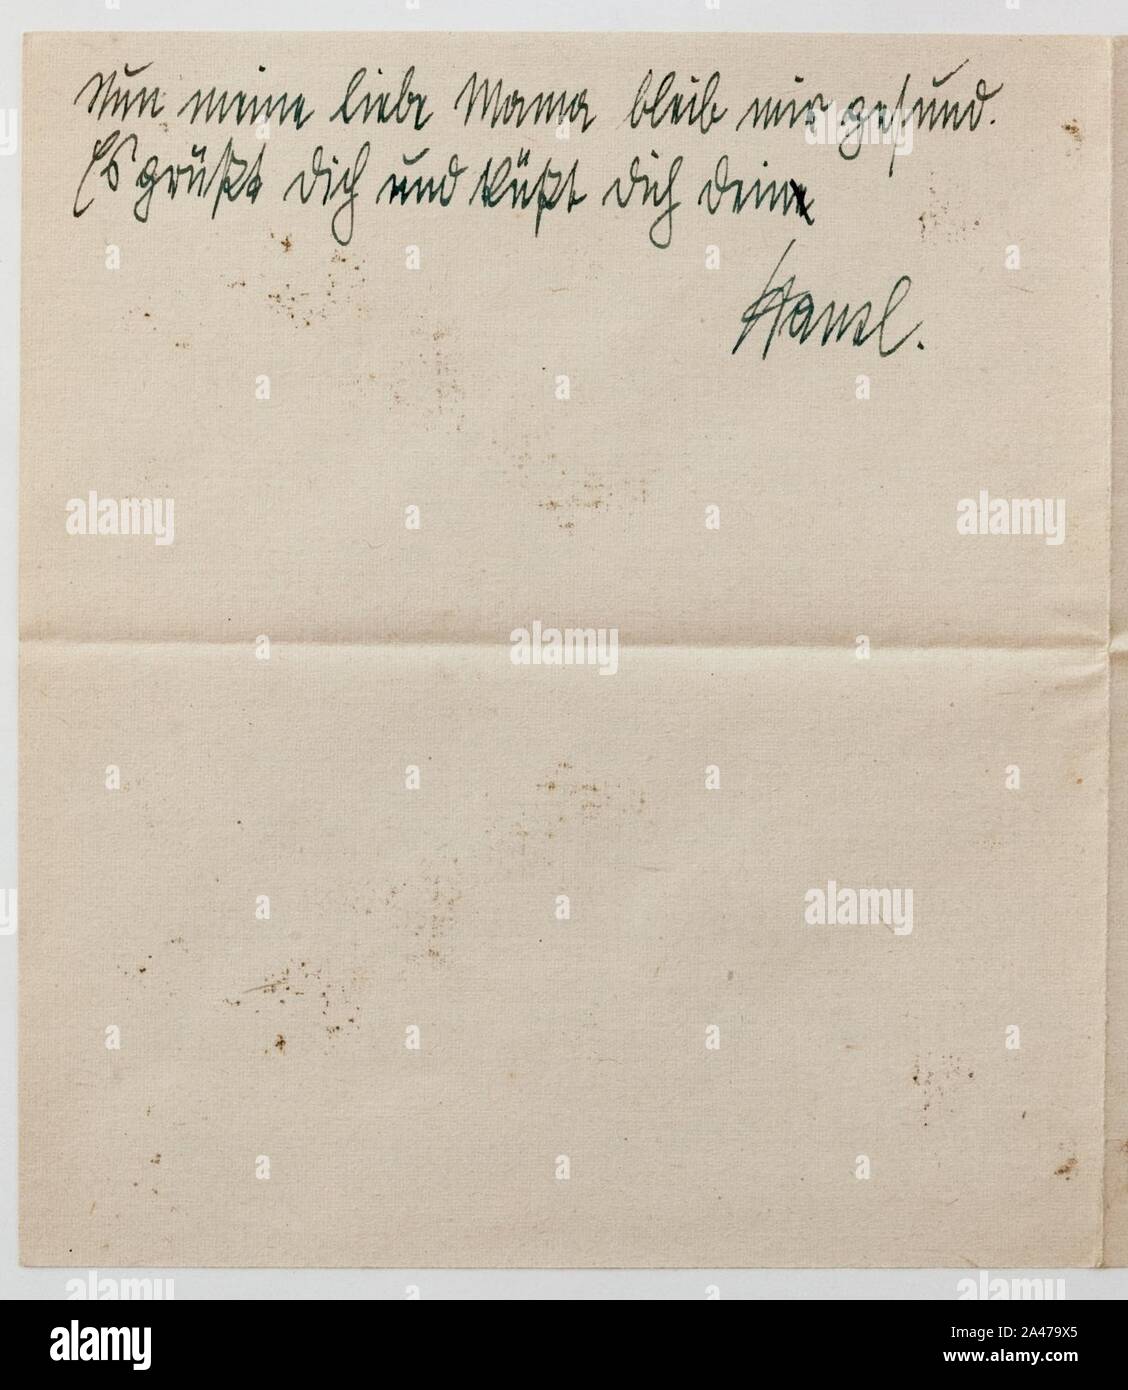 Nun meine liebe Mama bleib mir gesund.
Es grüßt Dich und küßt Dich Dein
Hansl.
alamy
alamy
alamy
alamy
alamy
Image ID: 2A479X5
www.alamy.com